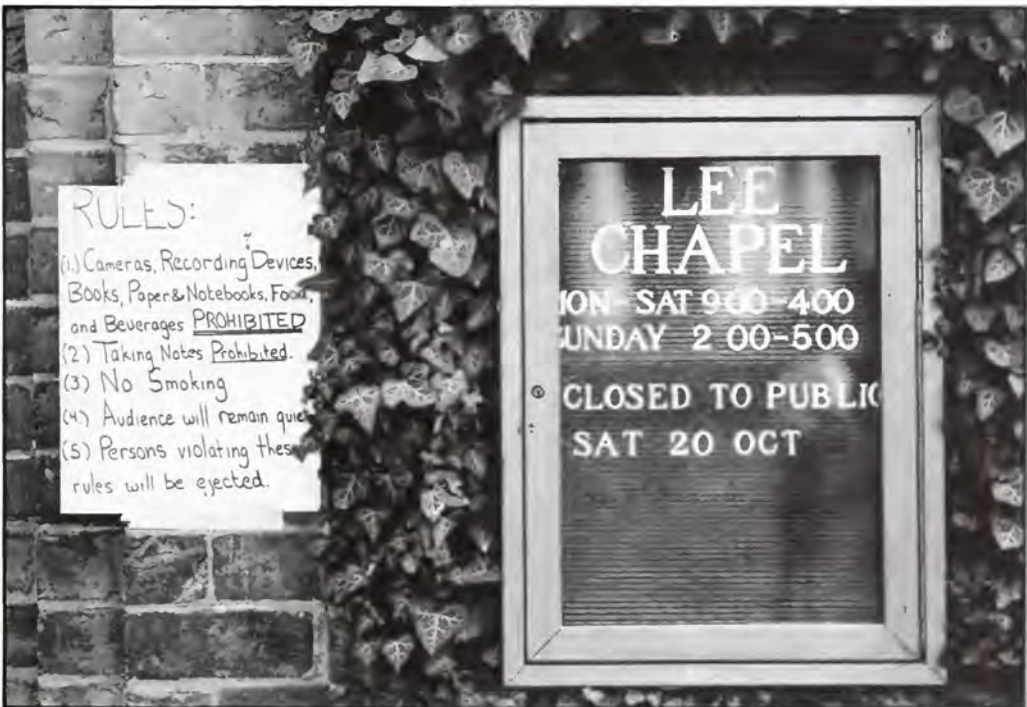 RULES:
(1.) Cameras, Recording Devices,
Books, Paper & Notebooks, Food,
and Beverages PROHIBITED
(2) Taking Notes Prohibited.
(3) No Smoking
(4.) Audience will remain quie
(5) Persons violating thes
rules will be ejected.
LEE
CHAPEL
MON - SAT 9 00-4 00
SUNDAY 2 00-5 00
CLOSED TO PUBLIC
SAT 20 OCT